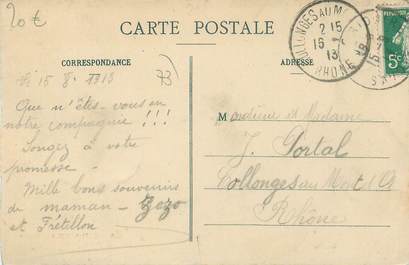 20€
CARTE POSTALE
COLLONGES AU M
2 15
15
13
RHONE
5c
CORRESPONDANCE
ADRESSE
15 8 1913
73
Que n'êtes-vous en
notre compagnie !!!
Songez à votre
promesse -
Mille bons souvenirs
de maman - Zozo
et Frétillon
Monsieur et Madame
J. Portal
Collonges au Mont d'Or
Rhône